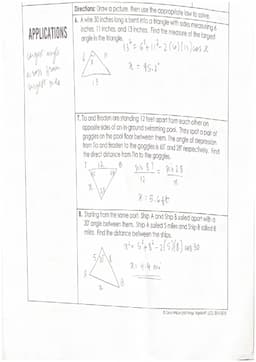 APPLICATIONS
largest angle
across from
largest side
Directions: Draw a picture, then use the appropriate law to solve.
6. A wire 30 inches long is bent into a triangle with sides measuring 6
inches, 11 inches, and 13 inches. Find the measure of the largest
angle in the triangle.
13² = 6² + 11² - 2(6)(11) cos x
6
11
x
13
7. Tia and Braden are standing 12 feet apart from each other on
opposite sides of an in ground swimming pool. They spot a pair of
goggles on the pool floor between them. The angle of depression
from Tia and Braden to the goggles is 65° and 28° respectively. Find
the direct distance from Tia to the goggles.
T 12 B
65 28
x
sin 87
12
=
sin 28
x
x = 5.6 ft
8. Starting from the same port, Ship A and Ship B sailed apart with a
30° angle between them. Ship A sailed 5 miles and Ship B sailed 8
miles. Find the distance between the ships.
x² = 5² + 8² - 2(5)(8) cos 30
5
8
A
B
x